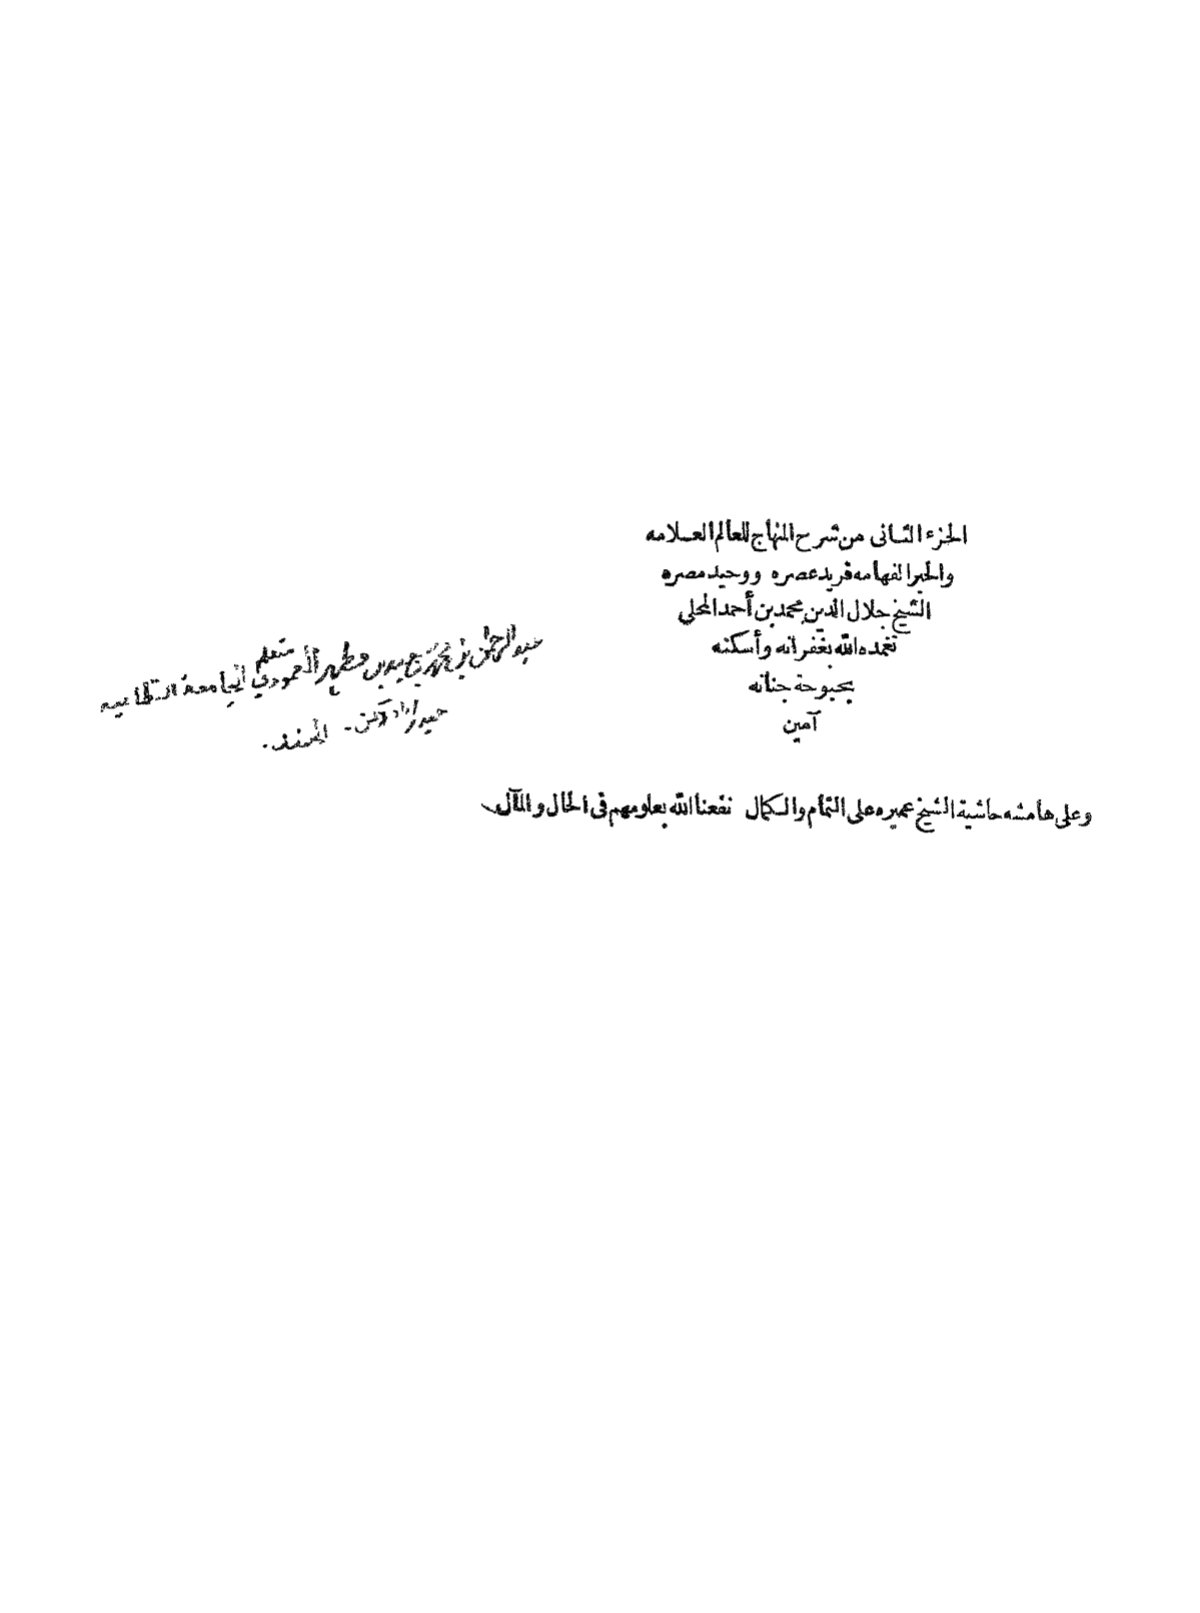 الجزء الثانى من شرح المنهاج للعالم العلامه
والحبر الفهامه فريد عصره ووحيد مصره
الشيخ جلال الدين محمد بن أحمد المحلى
تغمده الله بغفرانه وأسكنه
بحبوحة جنانه
آمين
عبد الرحمن بن محمد بن مطهر العمودي متعلم الجامعة النظاميه
حيدراباد دكن - الهند.
وعلى هامشه حاشية الشيخ عميره على التمام والكمال نفعنا الله بعلومهم فى الحال والمآل